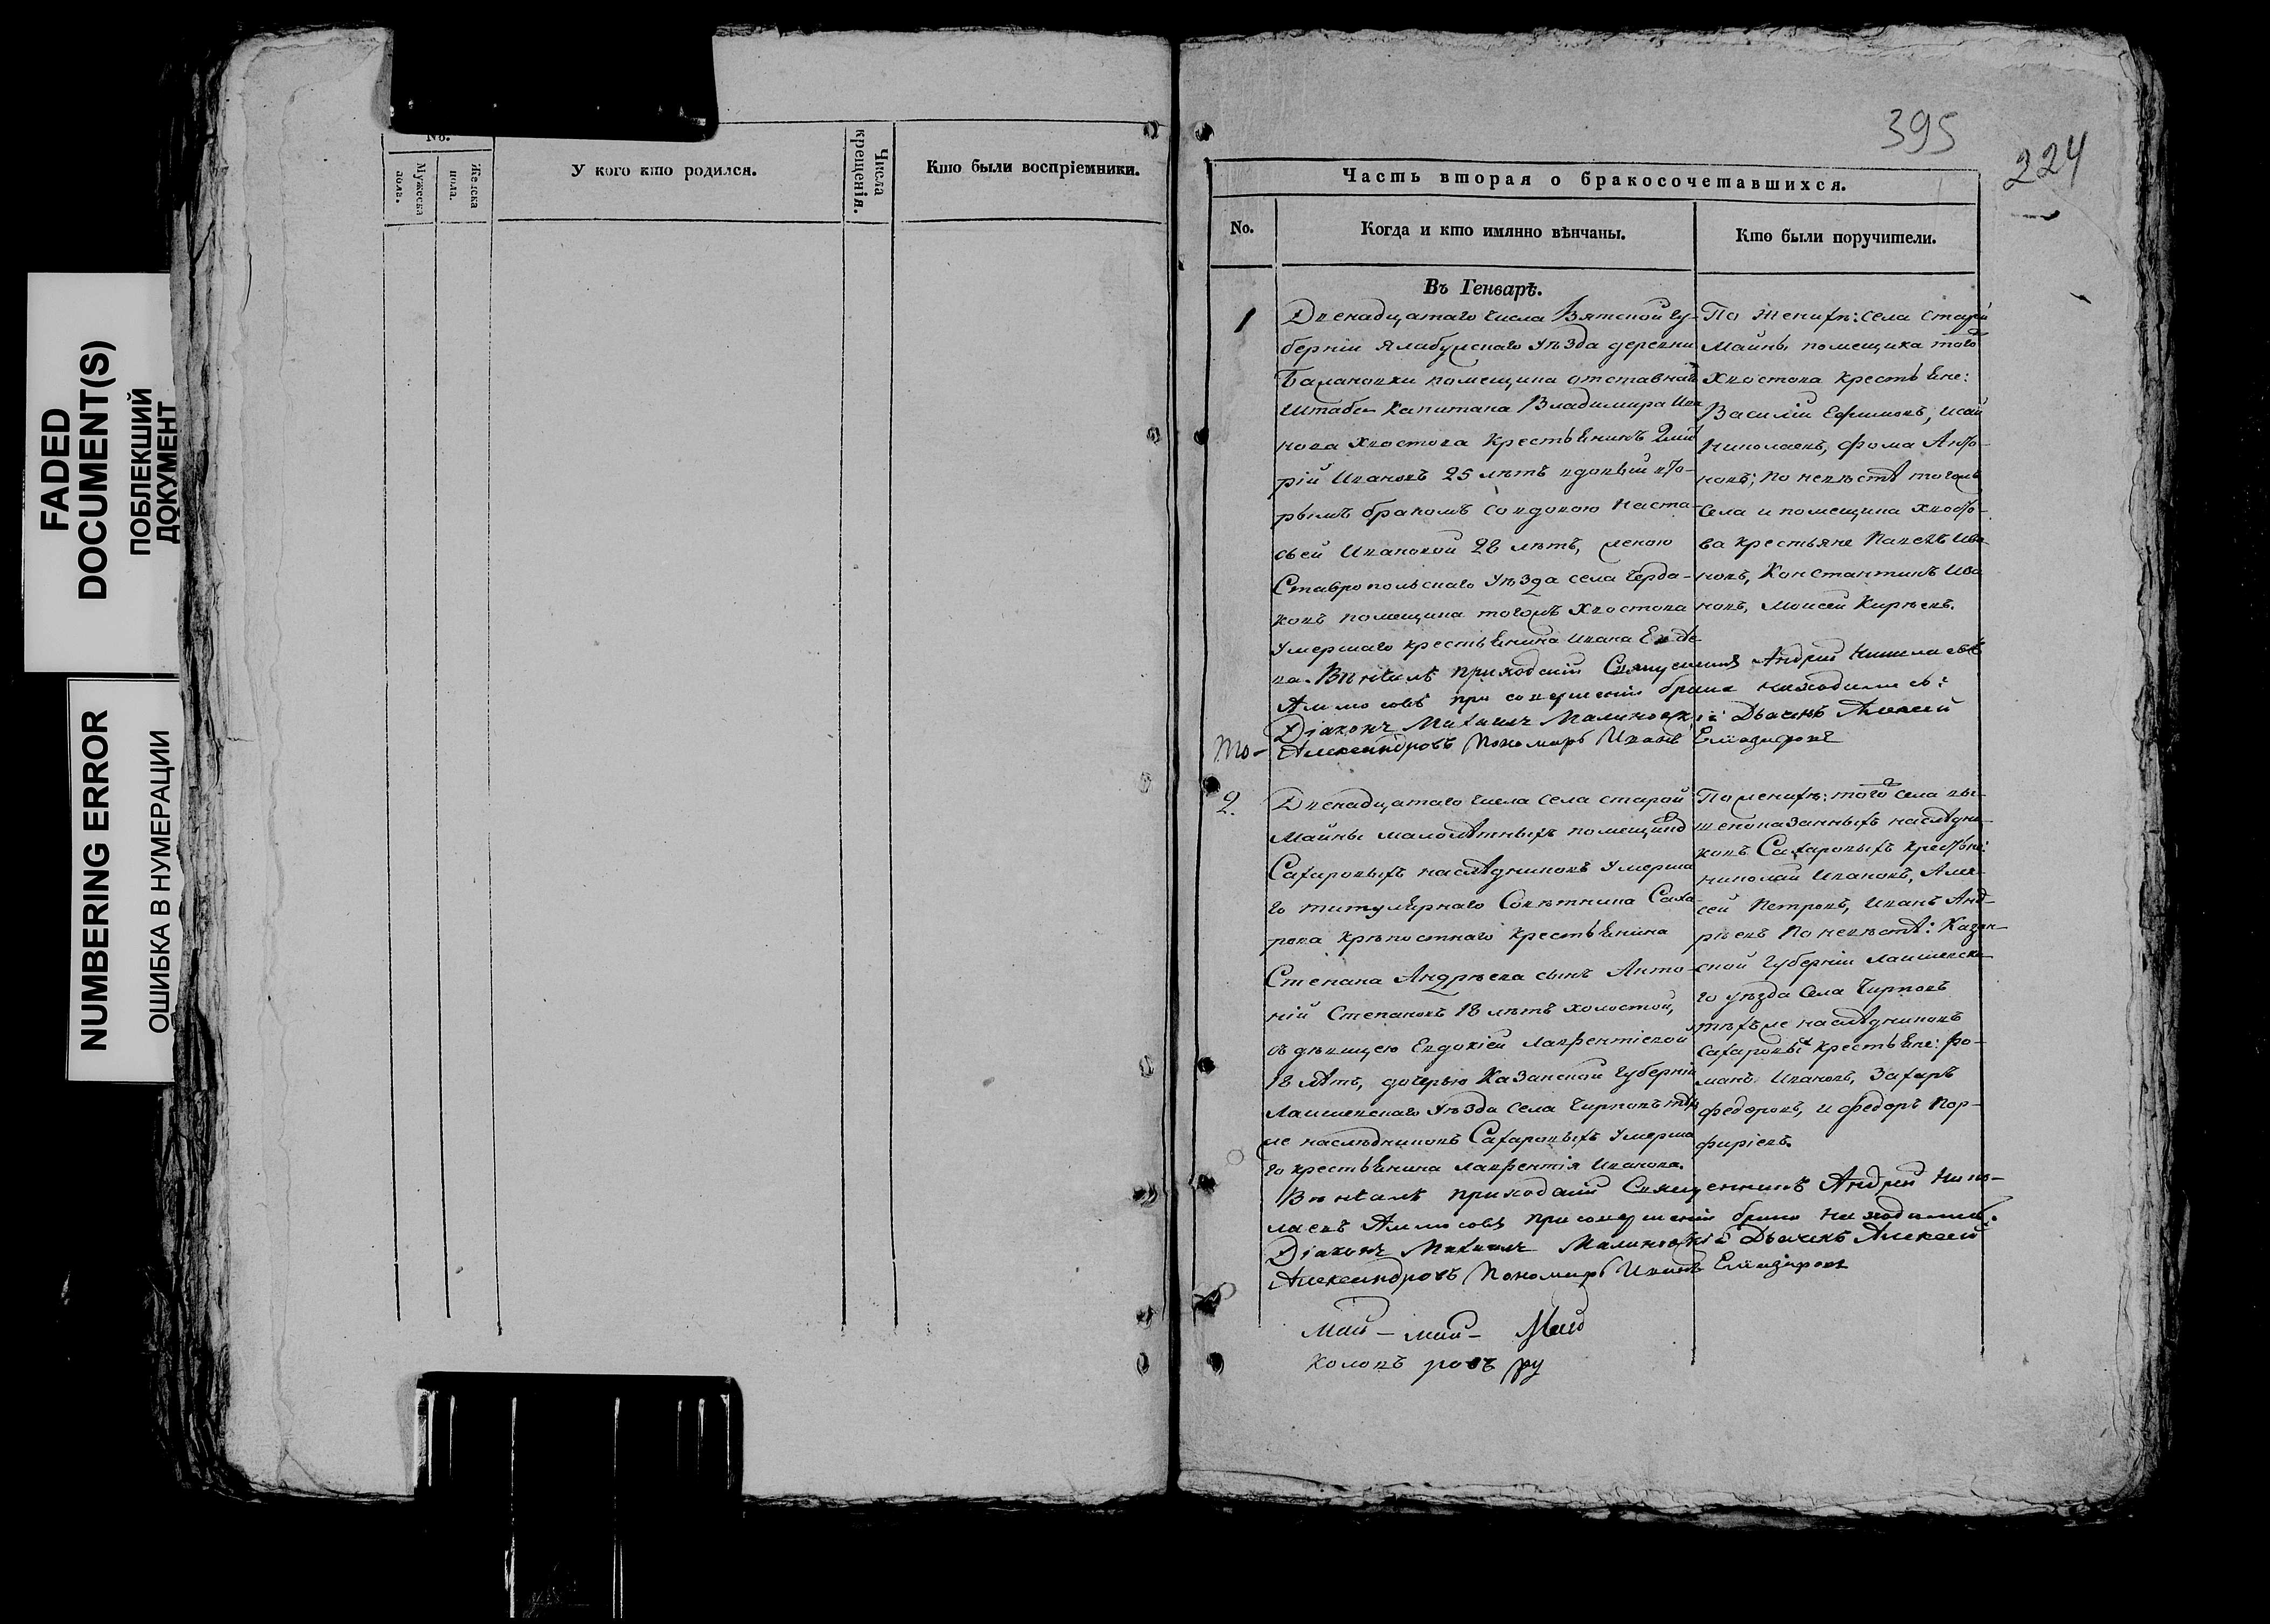 FADED
DOCUMENT(S)
ПОБЛЕКШИЙ
ДОКУМЕНТ
NUMBERING ERROR
ОШИБКА В НУМЕРАЦИИ
No.
Мужеска пола.
Женска пола.
У кого кто родился.
Числа крещенія.
Кто были воспріемники.
395
224
Часть вторая о бракосочетавшихся.
No.
Когда и кто имянно вѣнчаны.
Кто были поручители.
Въ Генварѣ.
1
Двенадцатаго числа Вятской гу-
берніи Ялабужскаго уѣзда деревни
помещика отставнаго
Штабс-Капитана Владимира Ива
нова Хвостова крестьянинъ
рій Ивановъ 25 лѣтъ вдовый вто-
рымъ бракомъ со вдовою Наста-
сьей Ивановой 28 лѣтъ, женою
Ставропольскаго уѣзда села Черда-
ковъ помещика тогожъ Хвостова
умершаго крестьянина Ивана
ва. Вѣнчалъ приходскій Священникъ Андрей Николаевъ
Аммосовъ при совершеніи брака находились:
Діаконъ Михаилъ Малиновскій Дьячекъ Алексей
то- Александровъ Пономарь Иванъ Елиазаровъ
По женихѣ: села старой
Майны помещика того
Хвостова крестьяне:
Василій Ефимовъ, Исай
Николаевъ, Фома Анто-
новъ; по невѣстѣ тогожъ
села и помещика Хвосто-
ва крестьяне Павелъ Ива
новъ, Константинъ Ива
новъ, Моисей Кирѣевъ.
2.
Двенадцатаго числа села старой
Майны малолѣтныхъ помещиковъ
Сахаровыхъ наслѣдниковъ умерша
го титулярнаго Совѣтника Саха-
рова крѣпостнаго крестьянина
Степана Андрѣева сынъ Анто-
ній Степановъ 18 лѣтъ холостой,
съ дѣвицею Евдокіей Лаврентіевой
18 лѣтъ, дочерью Казанской Губерніи
Лаишевскаго уѣзда села Чирповъ тѣхъ
же наслѣдниковъ Сахаровыхъ умерша
го крестьянина Лаврентія Иванова.
Вѣнчалъ приходскій Священникъ Андрей Нико-
лаевъ Аммосовъ при совершеніи брака находились:
Діаконъ Михаилъ Малиновскій Дьячекъ Алексей
Александровъ Пономарь Иванъ Елиазаровъ
По женихѣ: того села вы-
шепоказанныхъ наслѣдни-
ковъ Сахаровыхъ крестьяне:
Николай Ивановъ, Алек-
сей Петровъ, Иванъ Анд-
рѣевъ По невѣстѣ: Казан-
ской Губерніи Лаишевска-
го уѣзда Села Чирповъ
тѣхъ же наслѣдниковъ
Сахаровыхъ крестьяне: Ро-
манъ Ивановъ, Захаръ
Федоровъ, и Федоръ Пор-
фиріевъ.
Май - май - Май